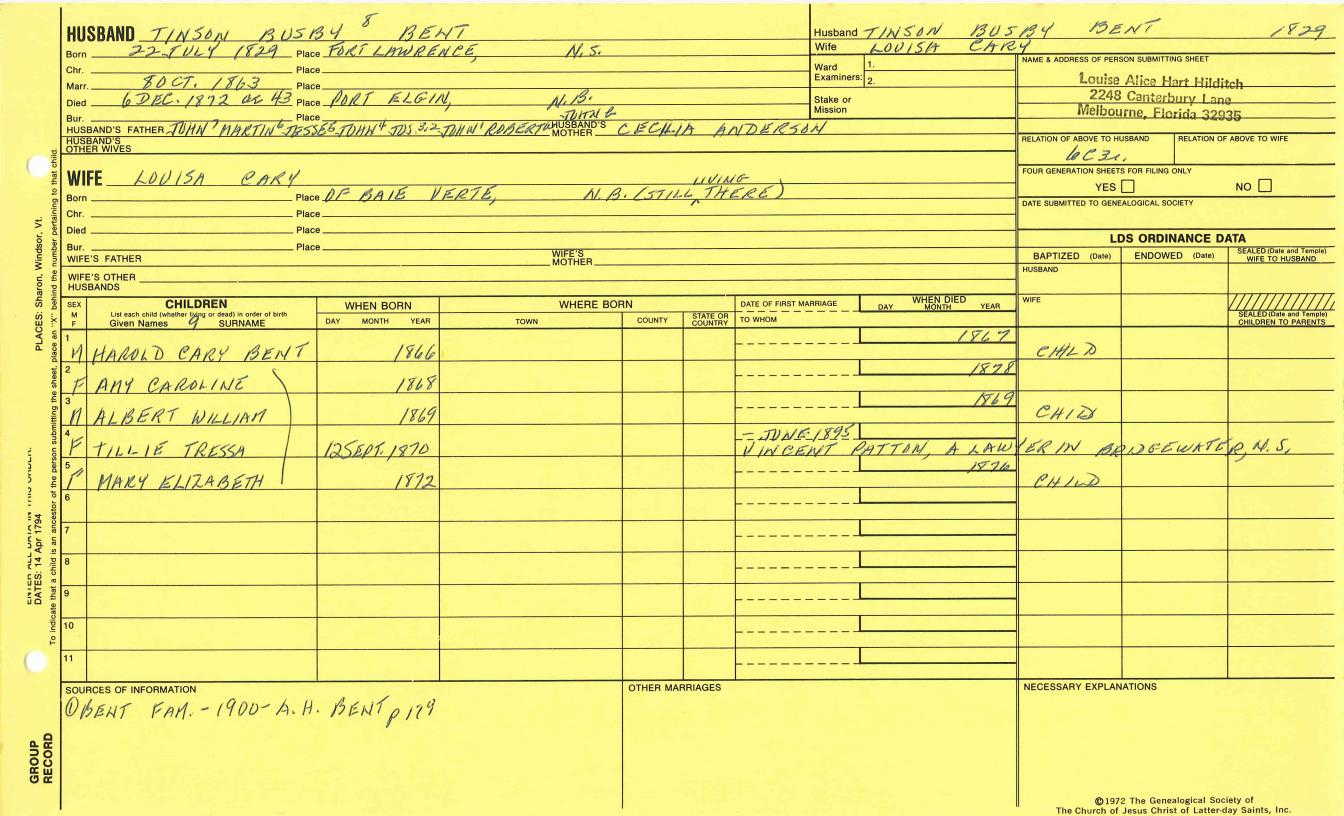 HUSBAND TINSON BUSBY 8 BENT
Born 22 JULY 1829 Place FORT LAWRENCE, N.S.
Chr. Place
Marr. 8 OCT. 1863 Place
Died 6 DEC. 1872 ae 43 Place PORT ELGIN, N.B.
Bur. Place
HUSBAND'S FATHER JOHN 7 MARTIN 6 JESSE 5 JOHN 4 JOS 3,2 JOHN 1 ROBERT JOHN HUSBAND'S MOTHER CECILIA ANDERSON
HUSBAND'S OTHER WIVES
WIFE LOUISA CARY
Born Place OF BAIE VERTE, N.B. (STILL LIVING THERE)
Chr. Place
Died Place
Bur. Place
WIFE'S FATHER WIFE'S MOTHER
WIFE'S OTHER HUSBANDS
Husband TINSON BUSBY BENT 1829
Wife LOUISA CARY
Ward Examiners: 1.
2.
Stake or Mission
NAME & ADDRESS OF PERSON SUBMITTING SHEET
Louise Alice Hart Hilditch
2248 Canterbury Lane
Melbourne, Florida 32935
RELATION OF ABOVE TO HUSBAND RELATION OF ABOVE TO WIFE
6C3r.
FOUR GENERATION SHEETS FOR FILING ONLY
YES NO
DATE SUBMITTED TO GENEALOGICAL SOCIETY
LDS ORDINANCE DATA
BAPTIZED (Date) ENDOWED (Date) SEALED (Date and Temple) WIFE TO HUSBAND
HUSBAND
WIFE
SEALED (Date and Temple) CHILDREN TO PARENTS
SEX M F CHILDREN WHEN BORN WHERE BORN DATE OF FIRST MARRIAGE WHEN DIED
List each child (whether living or dead) in order of birth
Given Names 9 SURNAME DAY MONTH YEAR TOWN COUNTY STATE OR COUNTRY TO WHOM DAY MONTH YEAR
1 M HAROLD CARY BENT 1866 1867 CHILD
2 F AMY CAROLINE 1868 1878
3 M ALBERT WILLIAM 1869 1869 CHILD
4 F TILLIE TRESSA 12 SEPT. 1870 - JUNE 1895
VINCENT PATTON, A LAWYER IN BRIDGEWATER, N.S.
5 F MARY ELIZABETH 1872 1876 CHILD
6
7
8
9
10
11
SOURCES OF INFORMATION OTHER MARRIAGES NECESSARY EXPLANATIONS
① BENT FAM. - 1900 - A. H. BENT p 179
©1972 The Genealogical Society of
The Church of Jesus Christ of Latter-day Saints, Inc.
PLACES: Sharon, Windsor, Vt.
ENTER ALL DATA IN THIS ORDER:
DATES: 14 Apr 1794
To indicate that a child is an ancestor of the person submitting the sheet, place an "X" behind the number pertaining to that child.
GROUP
RECORD